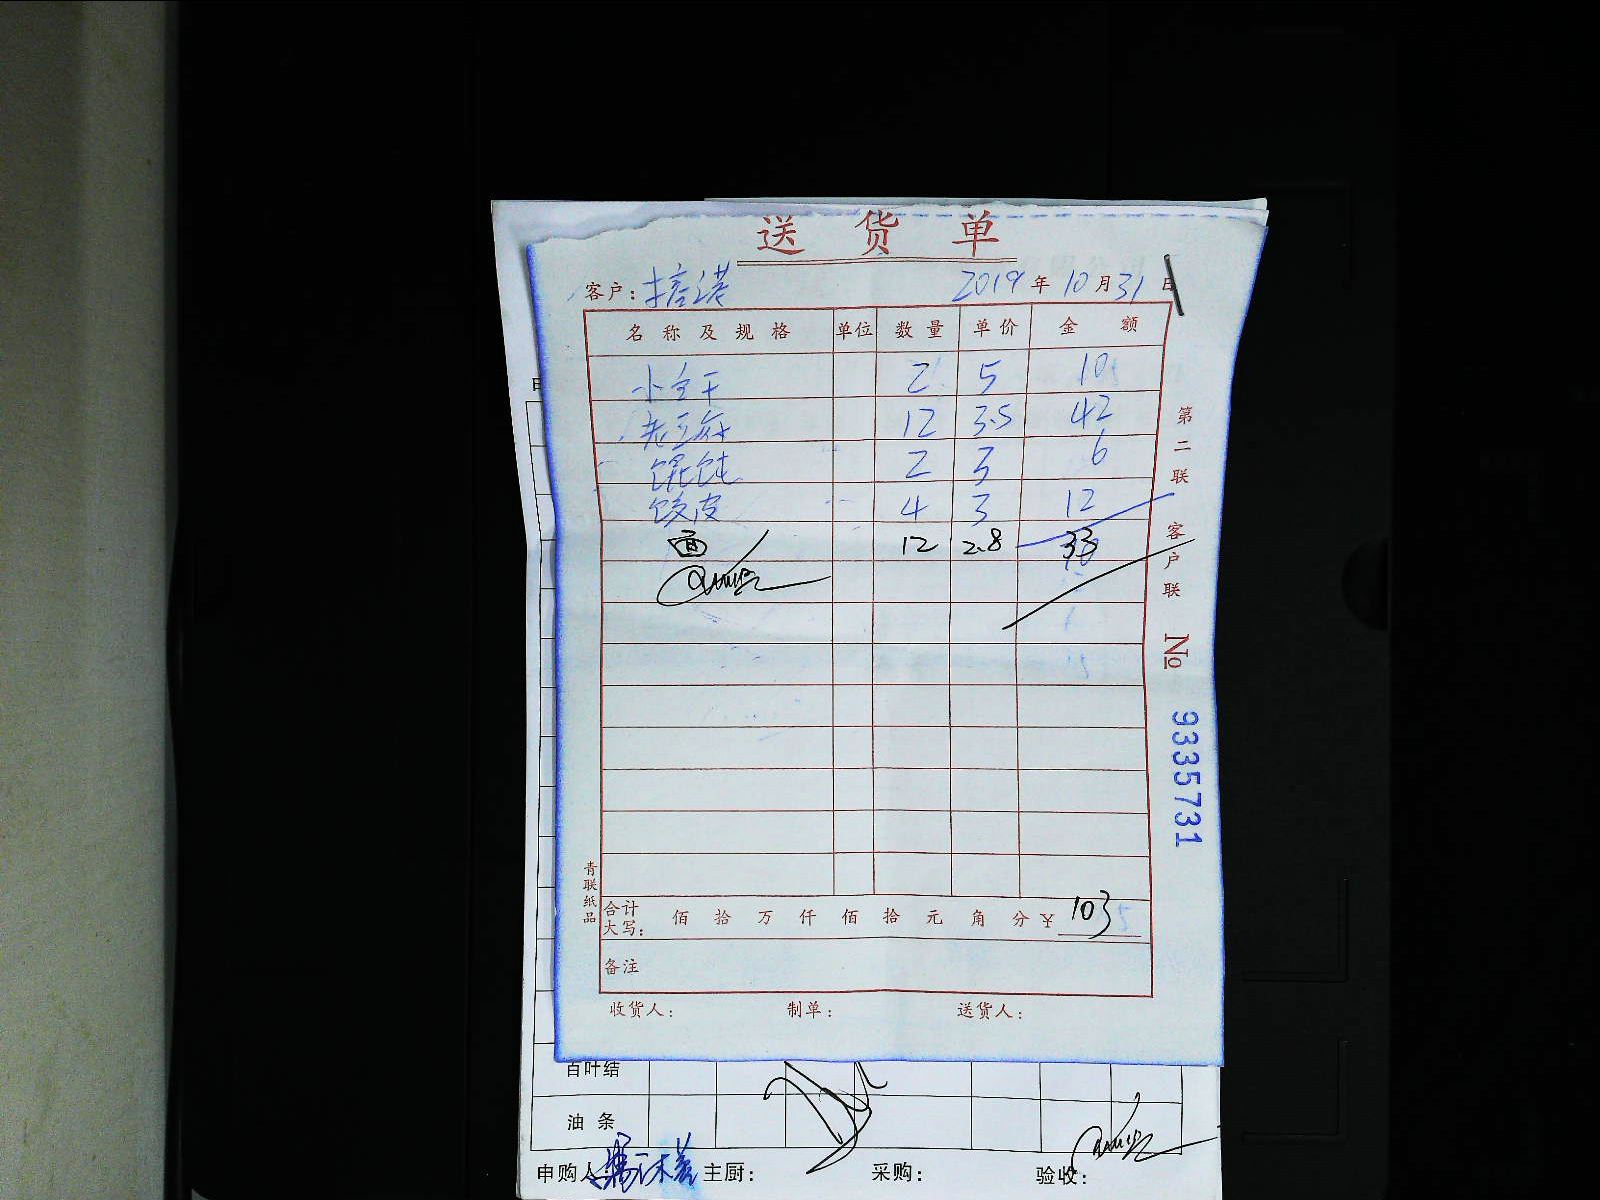 送货单
客户: 2019年10月31日
名称及规格 单位 数量 单价 金额
小 干 2 5 10
老豆 12 3.5 42
馄饨 2 3 6
饺皮 4 3 12
面 12 2.8 33
合计大写: 佰 拾 万 仟 佰 拾 元 角 分 ¥ 103
备注
收货人: 制单: 送货人:
青联纸品
第二联 客户联
No 9335731
百叶结
油条
申购人: 主厨: 采购: 验收: